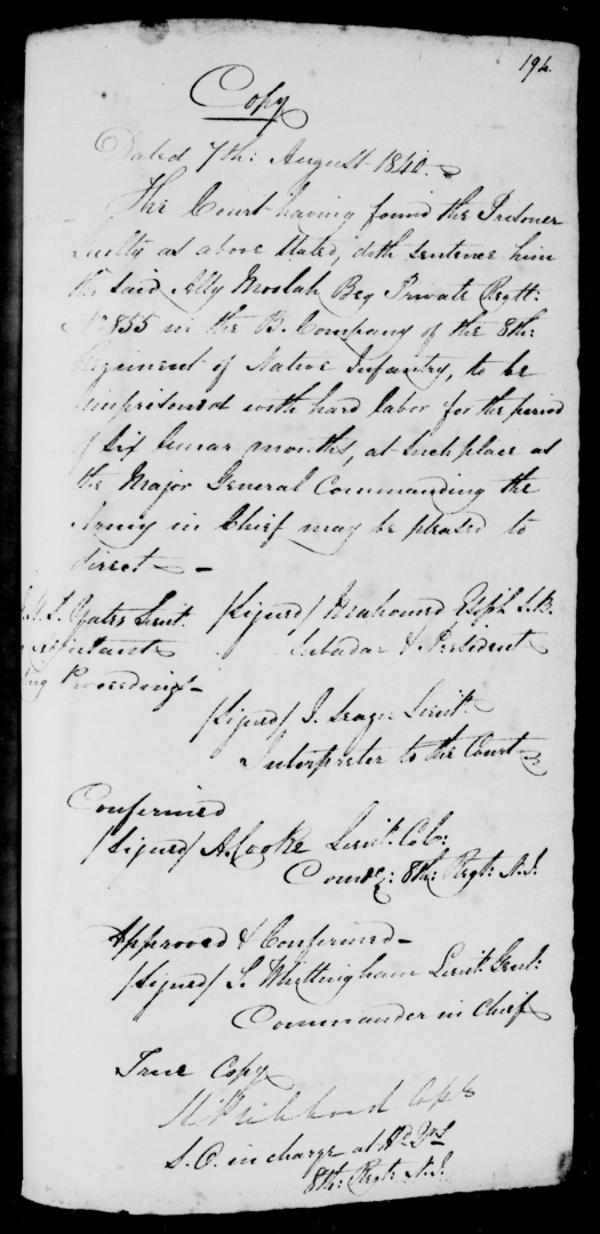 194.
Copy
Dated 7th: August 1840.
The Court having found the Prisoner
Guilty as above stated, doth sentence him
the said Ally Moolah Beg Private Regtl:
No. 855 in the B. Company of the 8th:
Regiment of Native Infantry, to be
imprisoned with hard labor for the period
of Six lunar months, at such place as
the Major General Commanding the
Army in Chief may be pleased to
direct
Yates Lieut.
Adjutant
Proceedings
/Signed/ Mahomed S.B.
Subadar & President
/Signed/ J. Lieut.
Interpreter to the Court
Confirmed
/Signed/ A. Cooke Lieut. Colo:
Comdg: 8th: Regt: N.I.
Approved & Confirmed
/Signed/ S. Whittingham Lieut. Genl:
Commander in Chief
True Copy
S.O. in charge at Hd. Qrs
8th: Regt: N.I.